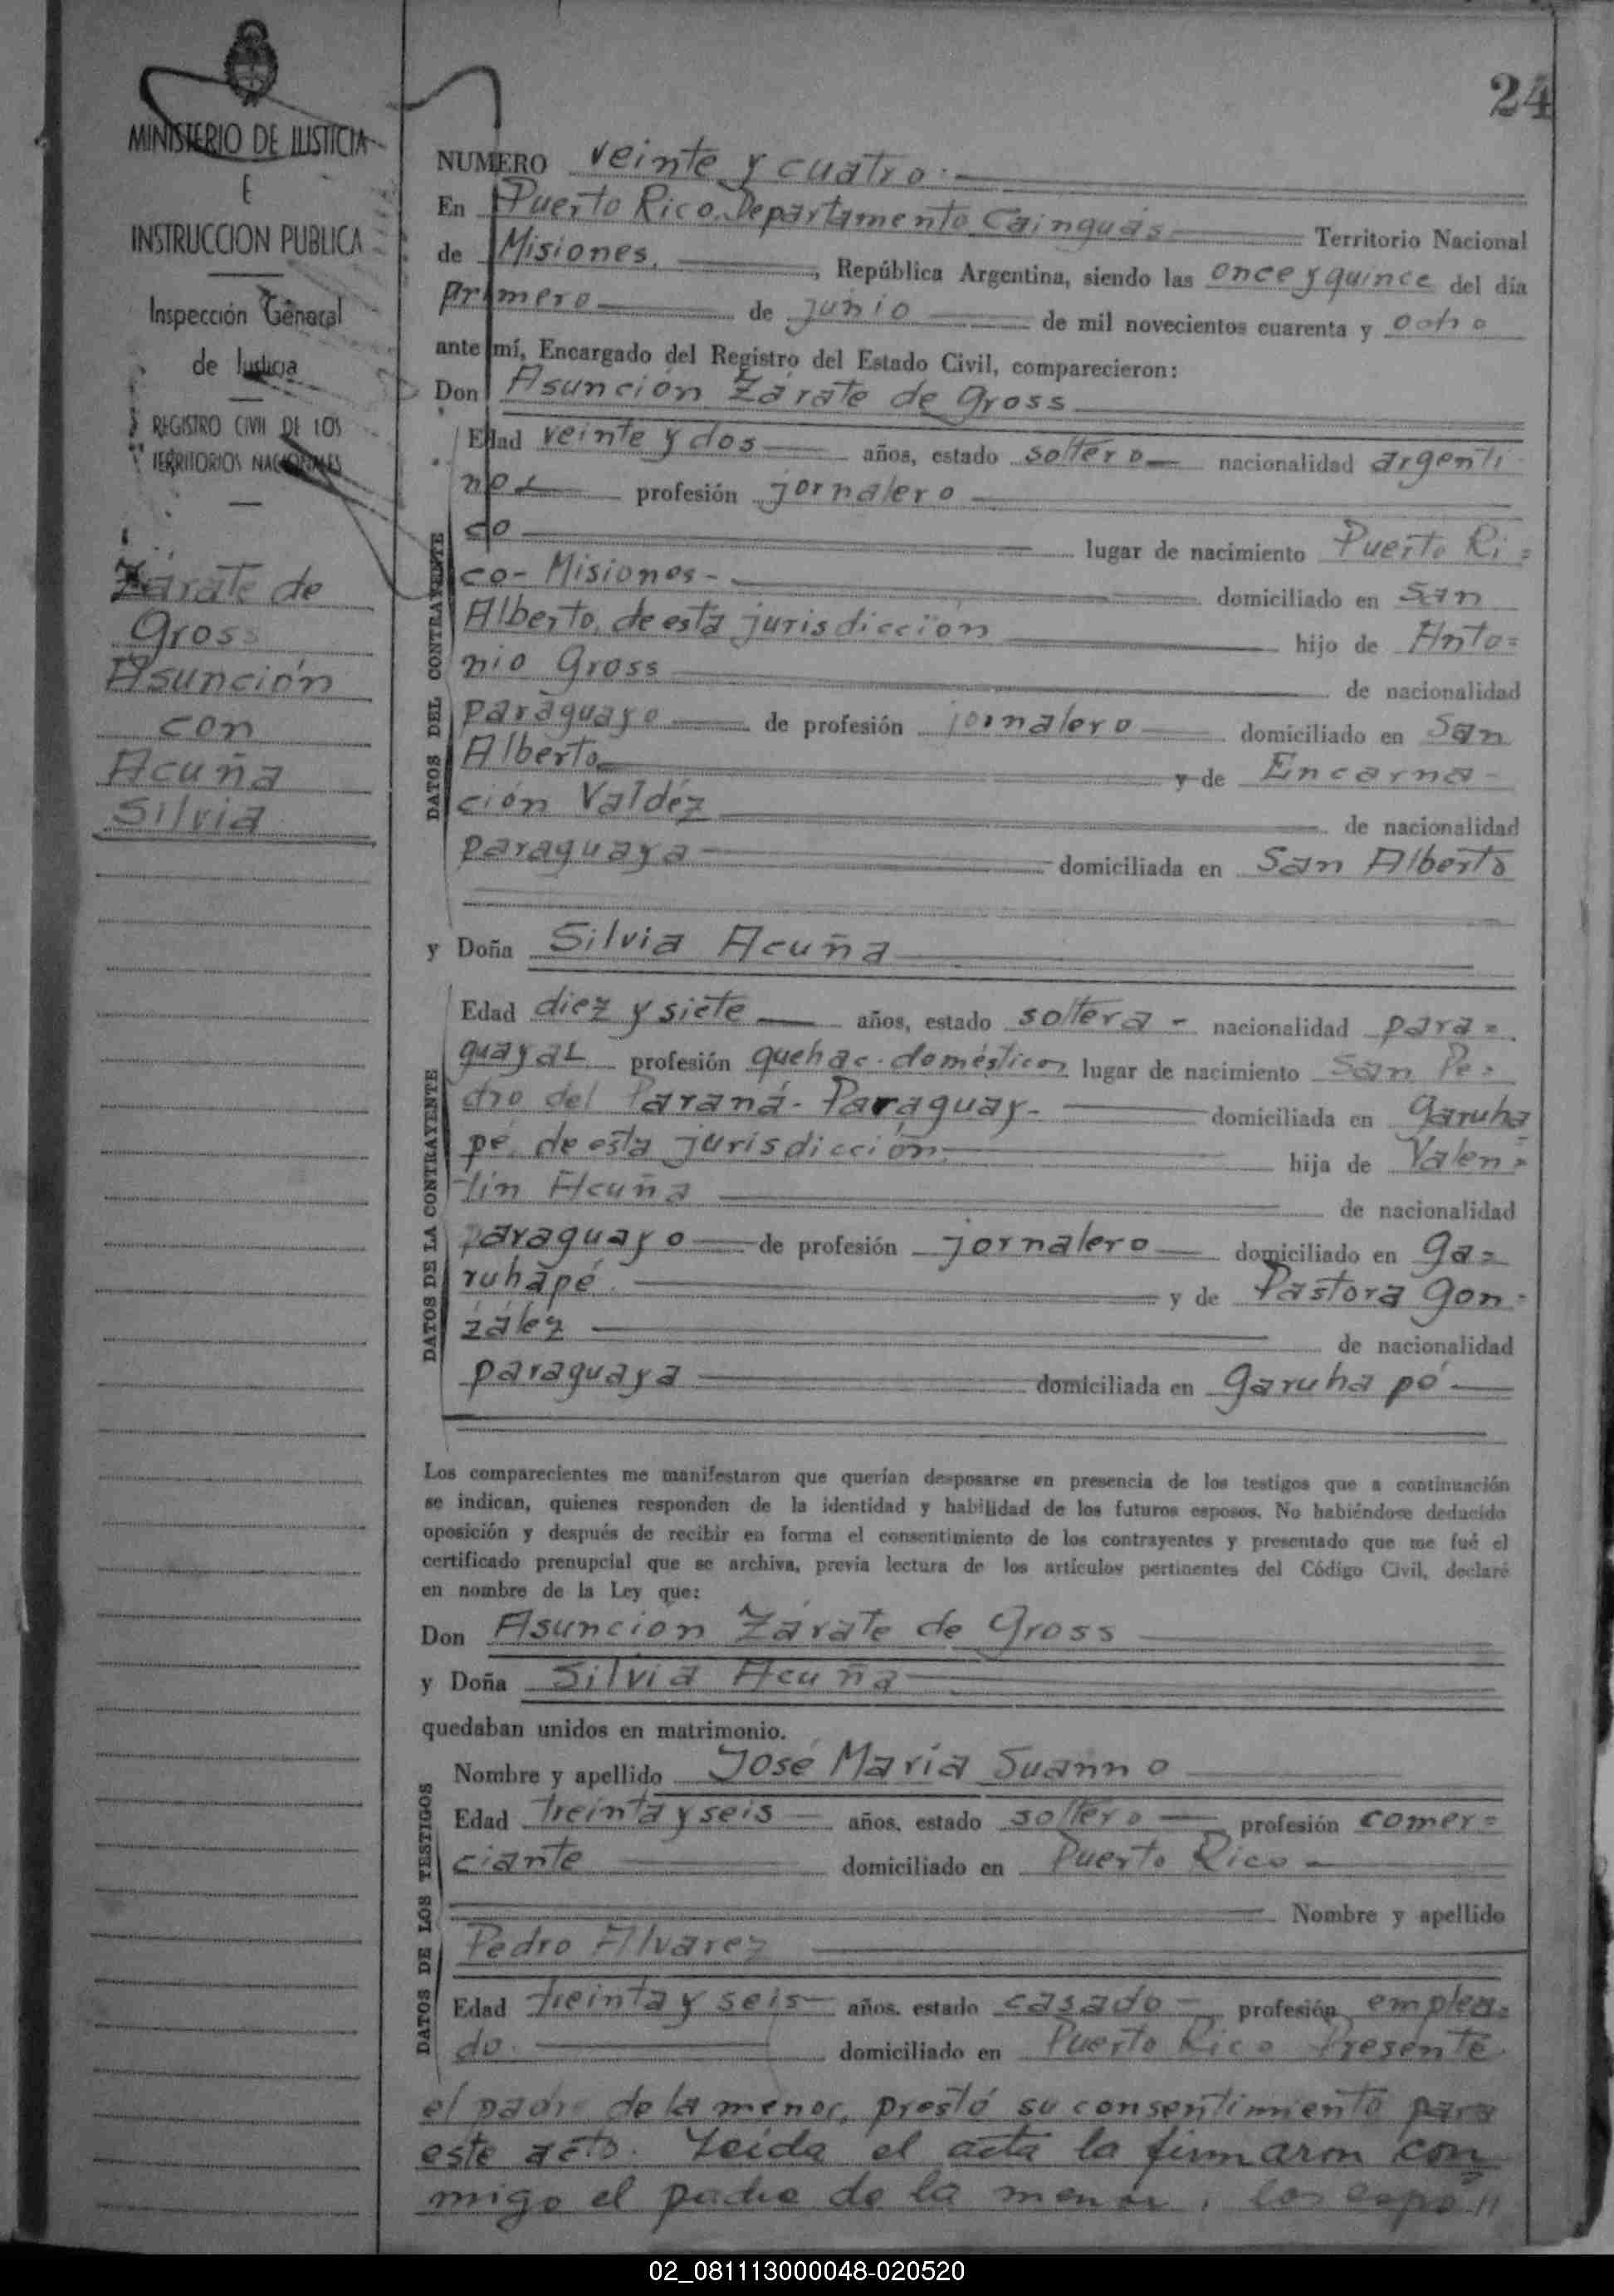 24
MINISTERIO DE JUSTICIA
E
INSTRUCCION PUBLICA
Inspección General
de Justicia
REGISTRO CIVIL DE LOS
TERRITORIOS NACIONALES
Zárate de
Gross
Asunción
con
Acuña
Silvia
NUMERO veinte y cuatro.
En Puerto Rico, Departamento Cainguás Territorio Nacional
de Misiones, República Argentina, siendo las once y quince del día
primero de junio de mil novecientos cuarenta y ocho
ante mí, Encargado del Registro del Estado Civil, comparecieron:
Don Asunción Zárate de Gross
Edad veinte y dos años, estado soltero nacionalidad argenti
no profesión jornalero
co lugar de nacimiento Puerto Ri=
co- Misiones- domiciliado en San
Alberto, de esta jurisdicción hijo de Anto=
nio Gross de nacionalidad
paraguayo de profesión jornalero domiciliado en San
Alberto y de Encarna-
ción Valdéz de nacionalidad
paraguaya domiciliada en San Alberto
DATOS DEL CONTRAYENTE
y Doña Silvia Acuña
Edad diez y siete años, estado soltera - nacionalidad para=
guaya profesión quehac. domésticos lugar de nacimiento San Pe=
dro del Paraná- Paraguay- domiciliada en Garuha
pé, de esta jurisdicción. hija de Valen=
tín Acuña de nacionalidad
paraguayo de profesión jornalero domiciliado en Ga=
ruhapé. y de Pastora Gon-
zález de nacionalidad
paraguaya domiciliada en Garuhapé
DATOS DE LA CONTRAYENTE
Los comparecientes me manifestaron que querían desposarse en presencia de los testigos que a continuación
se indican, quienes responden de la identidad y habilidad de los futuros esposos. No habiéndose deducido
oposición y después de recibir en forma el consentimiento de los contrayentes y presentado que me fué el
certificado prenupcial que se archiva, previa lectura de los artículos pertinentes del Código Civil, declaré
en nombre de la Ley que:
Don Asuncion Zárate de Gross
y Doña Silvia Acuña
quedaban unidos en matrimonio.
Nombre y apellido José María Suanno
Edad treinta y seis años, estado soltero profesión comer=
ciante domiciliado en Puerto Rico
Nombre y apellido
Pedro Alvarez
Edad treinta y seis años, estado casado profesión emplea=
do. domiciliado en Puerto Rico Presente
DATOS DE LOS TESTIGOS
el padre de la menor, prestó su consentimiento para
este acto. Leída el acta la firmaron con
migo el padre de la menor, los espo"
02_081113000048-020520